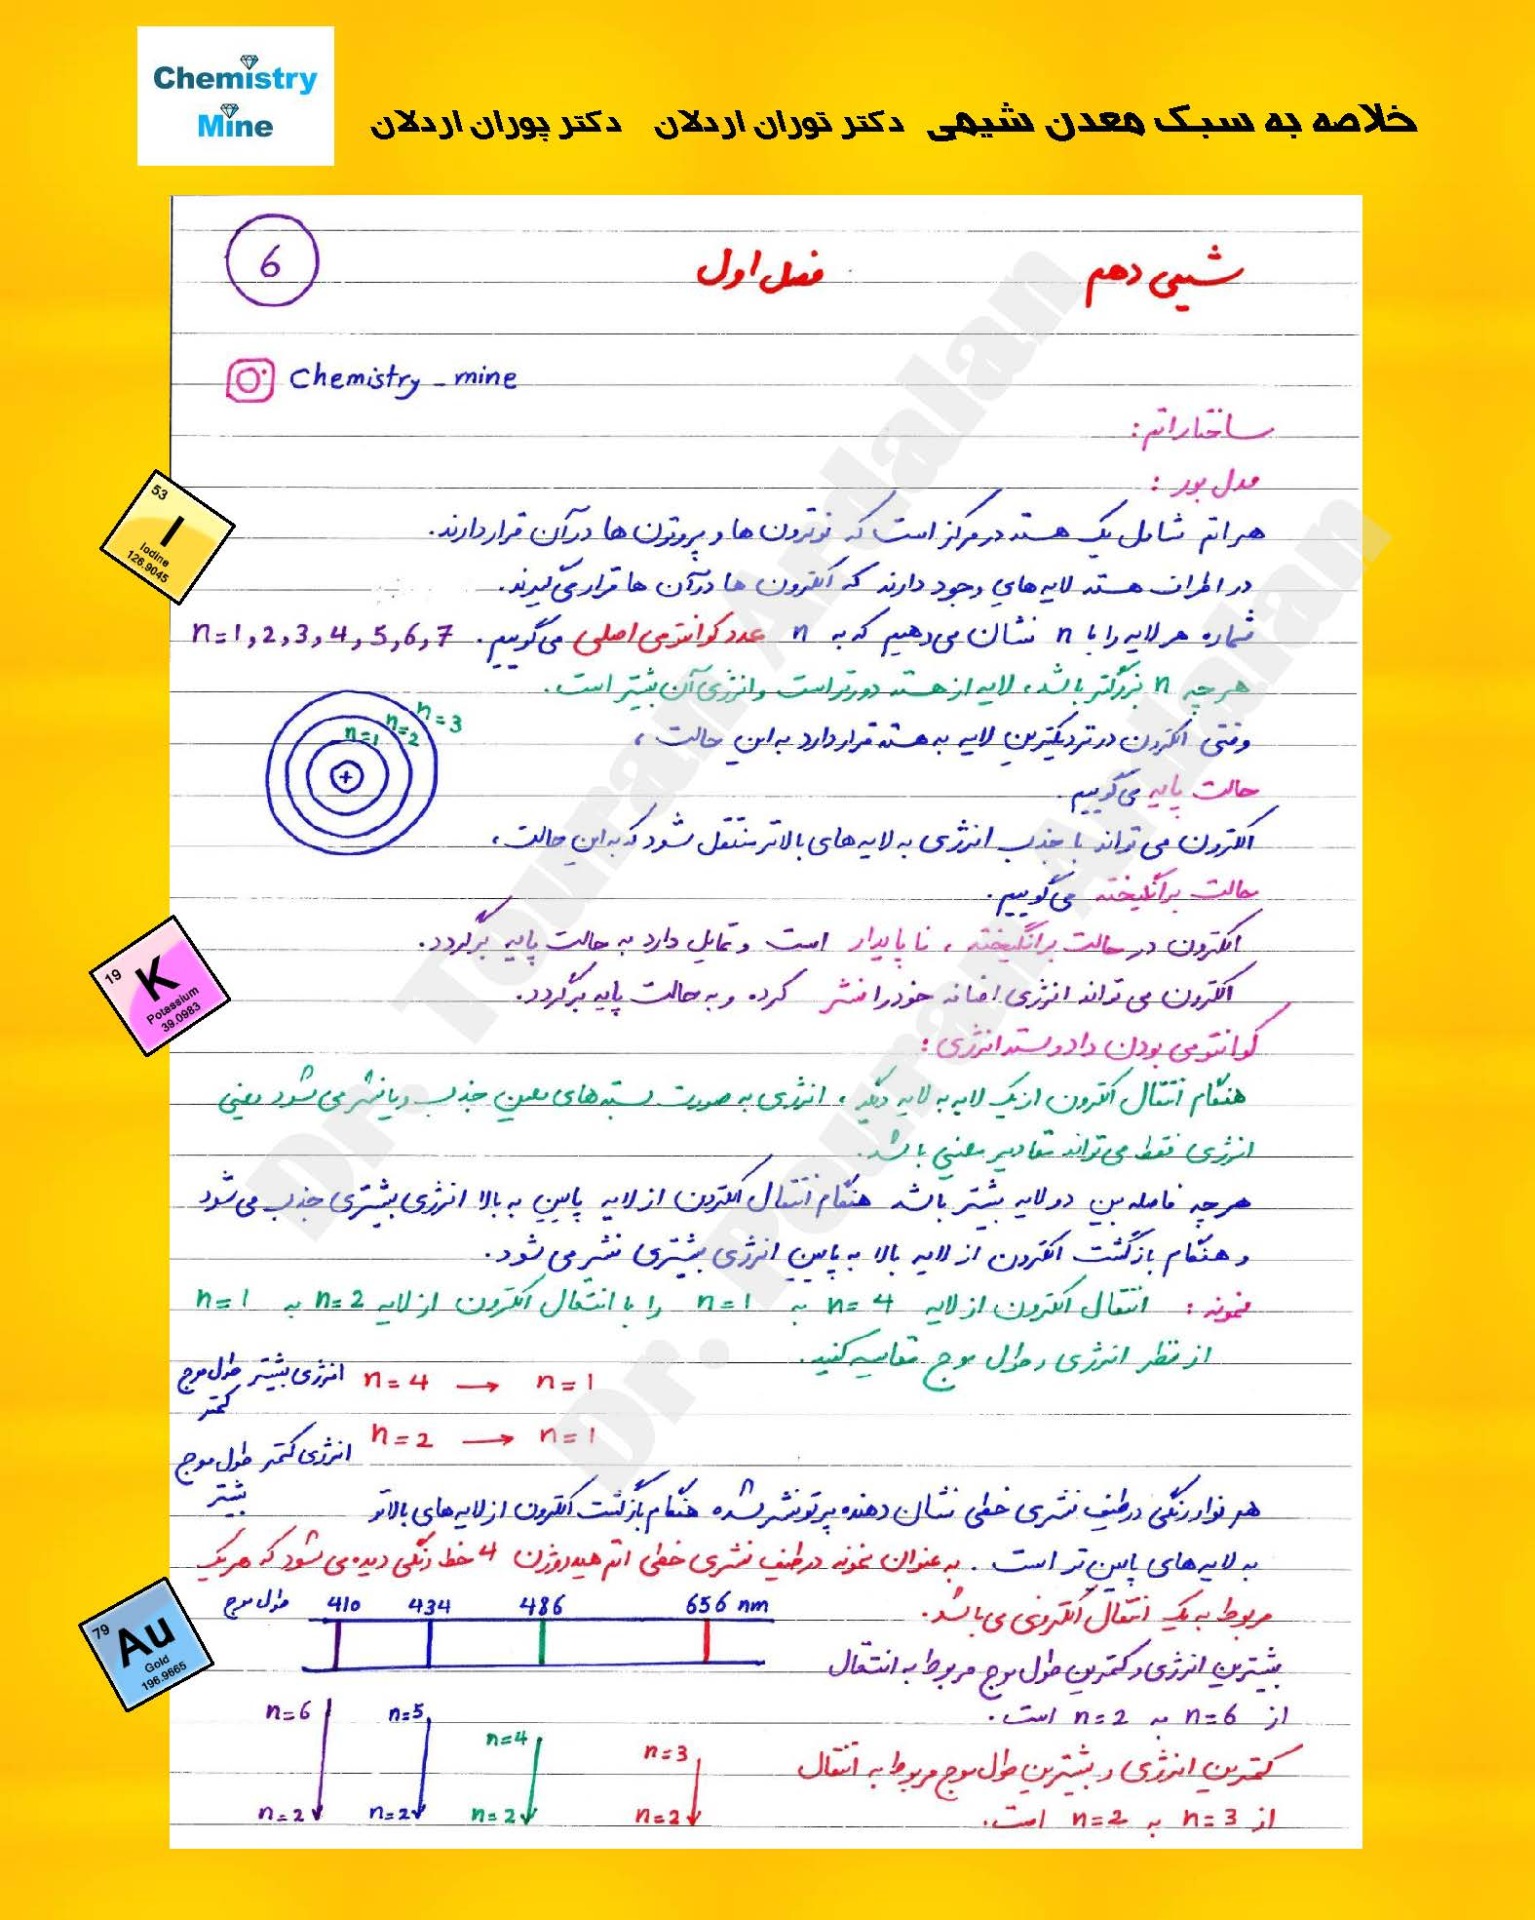 Chemistry
Mine
خلاصه به سبک معدن شیمی دکتر توران اردلان دکتر پوران اردلان
شیمی دهم فصل اول 6
Chemistry_mine
ساختار اتم:
مدل بور:
هر اتم شامل یک هسته در مرکز است که نوترون ها و پروتون ها در آن قرار دارند.
در اطراف هسته لایه هایی وجود دارند که الکترون ها در آن ها قرار می گیرند.
شماره هر لایه را با n نشان می دهیم که به n عدد کوانتومی اصلی می گوییم. n=1,2,3,4,5,6,7
هر چه n بزرگتر باشد، لایه از هسته دورتر است و انرژی آن بیشتر است.
n=1 n=2 n=3
وقتی الکترون در نزدیکترین لایه به هسته قرار دارد به این حالت،
حالت پایه می گوییم.
الکترون می تواند با جذب انرژی به لایه های بالاتر منتقل شود که به این حالت،
حالت برانگیخته می گوییم.
الکترون در حالت برانگیخته، ناپایدار است و تمایل دارد به حالت پایه برگردد.
الکترون می تواند انرژی اضافه خود را نشر کرده و به حالت پایه برگردد.
کوانتومی بودن داد و ستد انرژی:
هنگام انتقال الکترون از یک لایه به لایه دیگر، انرژی به صورت بسته های معین جذب و یا نشر می شود یعنی
انرژی فقط می تواند مقادیر معینی باشد.
هر چه فاصله بین دو لایه بیشتر باشد هنگام انتقال الکترون از لایه پایین به بالا انرژی بیشتری جذب می شود
و هنگام بازگشت الکترون از لایه بالا به پایین انرژی بیشتری نشر می شود.
نمونه: انتقال الکترون از لایه n=4 به n=1 را با انتقال الکترون از لایه n=2 به n=1
از نظر انرژی و طول موج مقایسه کنید.
n=4 → n=1 انرژی بیشتر طول موج
کمتر
n=2 → n=1 انرژی کمتر طول موج
بیشتر
هر نوار رنگی در طیف نشری خطی نشان دهنده پرتو نشر شده هنگام بازگشت الکترون از لایه های بالاتر
به لایه های پایین تر است. به عنوان نمونه در طیف نشری خطی اتم هیدروژن 4 خط رنگی دیده می شود که هر یک
مربوط به یک انتقال الکترونی می باشد.
طول موج 410 434 486 656 nm
بیشترین انرژی و کمترین طول موج مربوط به انتقال
از n=6 به n=2 است.
کمترین انرژی و بیشترین طول موج مربوط به انتقال
از n=3 به n=2 است.
n=6 n=5 n=4 n=3
n=2 n=2 n=2 n=2
53
I
Iodine
126.9045
19
K
Potassium
39.0983
79
Au
Gold
196.9665
Dr. Touran Ardalan
Dr. Pouran Ardalan